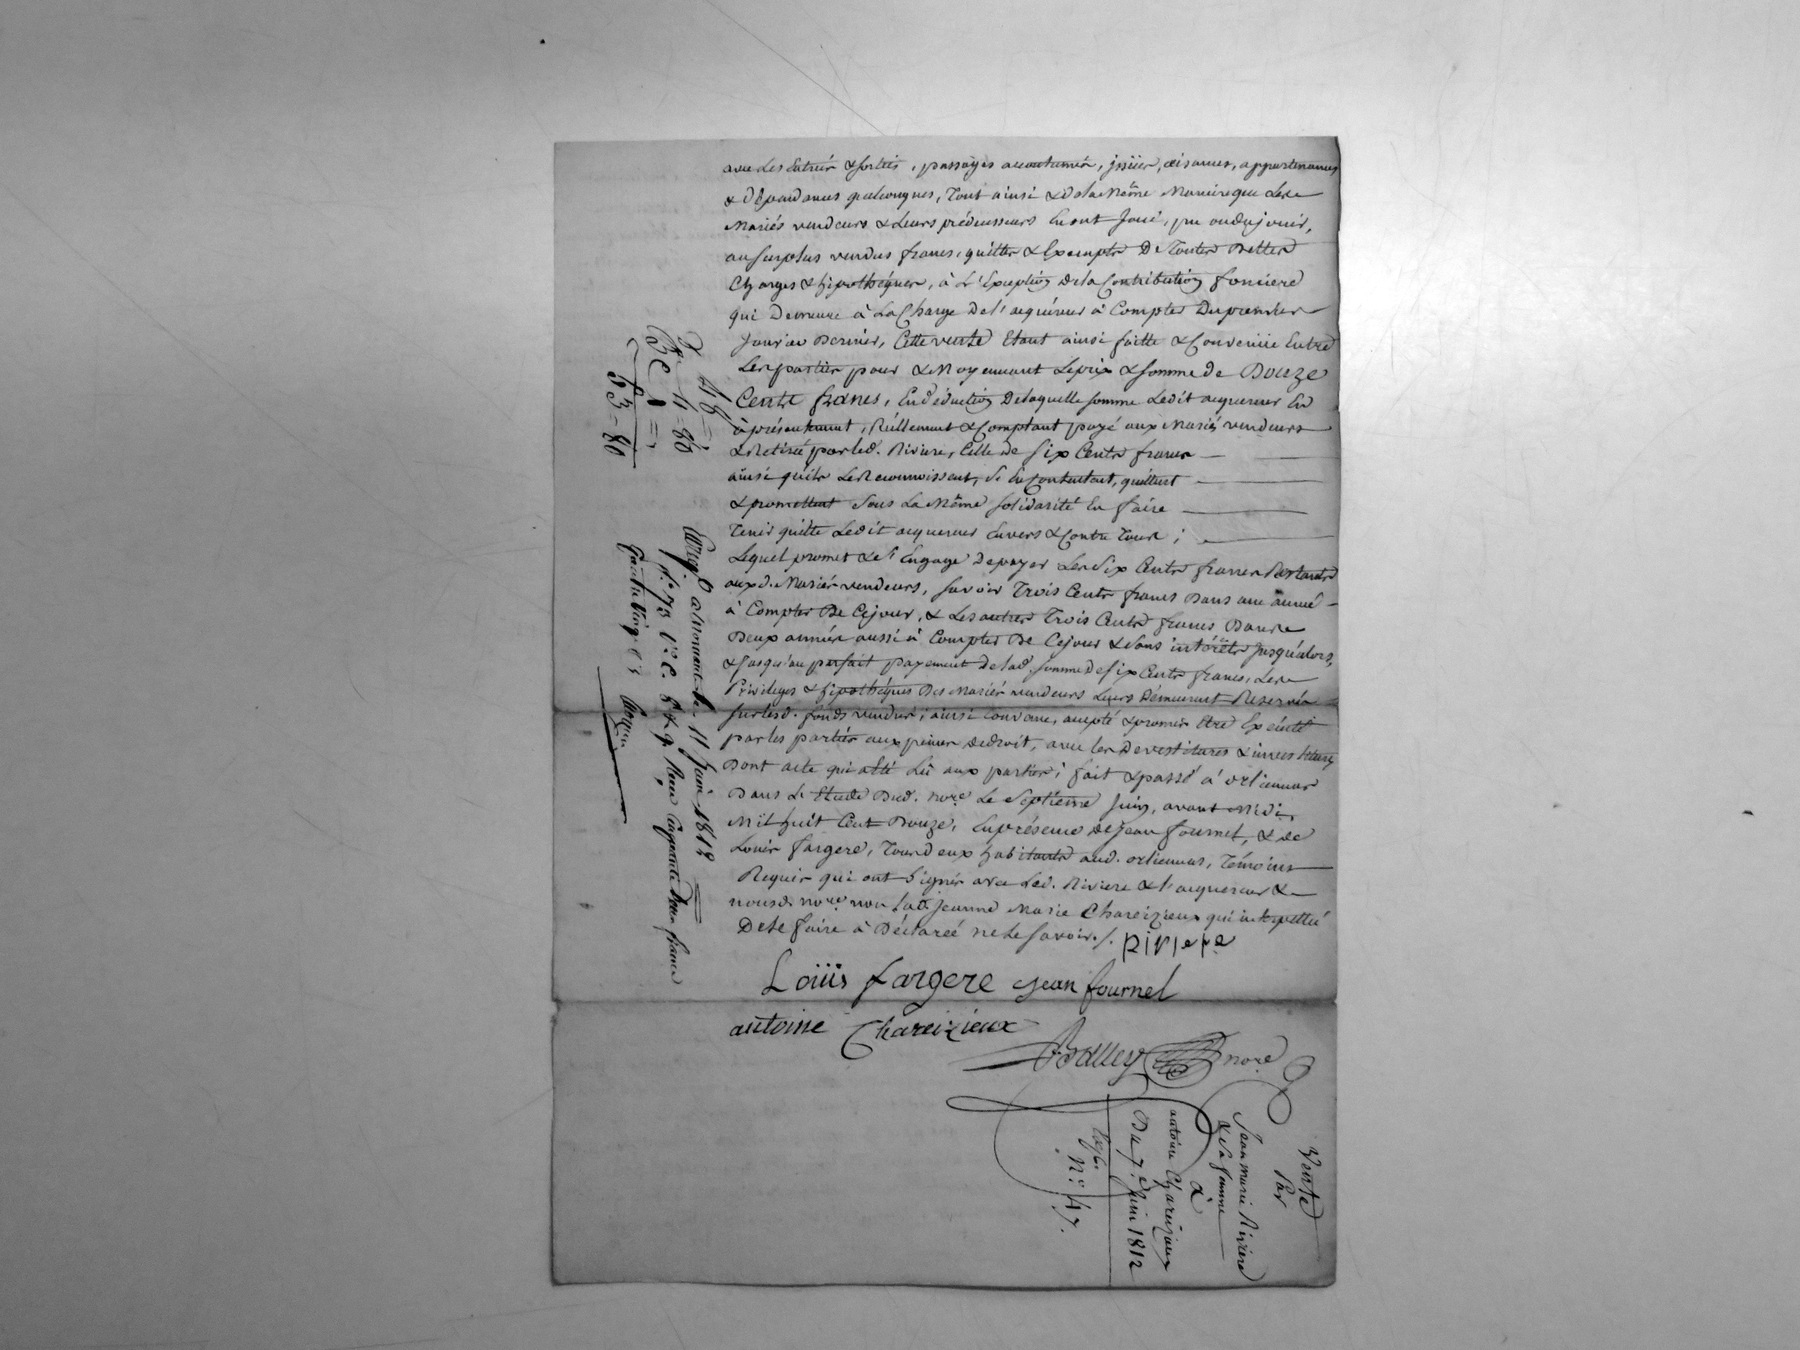 avec les Entrées & sorties, passages accoutumés, issües, aisances, appartenances
& dépendances quelconques, tout ainsi & de la même manière que les
Mariés vendeurs & leurs prédécesseurs en ont Joui, pu ou du jouir,
au surplus vendus francs, quittes & Exempts De toutes Dettes
Charges & hipothéques, à L'Exception de la Contribution foncière
qui Demeure à La Charge de l'acquéreur à Compter du premier
Janvier Dernier, Cette vente Etant ainsi faitte & Convenüe Entre
Les parties pour & Moyennant Le prix & somme de Douze
Cents francs, En déduction de laquelle somme Ledit acquereur En
à présentement, Réellement & Comptant payé aux Mariés vendeurs
& Retiré par led. Riviere, Celle de six Cents francs
ainsi qu'ils Le Reconnoissent, s'en Contentent, quittent
& promettent sous La Même solidarité En faire
Tenir quitte Ledit acquereur Envers & Contre Tous ;
Lequel promet & s'Engage De payer Les six Cents francs Restants
auxd. Mariés vendeurs, savoir Trois Cents francs Dans une année
à Compter De Cejour, & Les autres Trois Cents francs Dans
Deux années aussi à Compter De Cejour & sans intérêts Jusqu'alors,
& Jusqu'au parfait payement de lad. somme de six Cents francs, Les
Privileges & hipothéques Des Mariés vendeurs Leurs Demeurent Reservés
sur lesd. fonds vendus ; ainsi Convenu, accepté & promis Etre Exécuté
par les parties aux peines de droit, avec les Devestitures & investitures
Dont acte qui a été Lû aux parties ; fait & passé à orlienas
Dans L'Etude Dud. no.re Le Septième Juin, avant Midi,
Mil huit Cent Douze, En présence de Jean fournel, & de
Louis fargere, Tous deux habitants aud. orlienas, Témoins
Requis qui ont signés avec Led. Riviere & l'acquereur &
nousd. no.re non lad.e Jeanne Marie Chareizieux qui interpellée
De le faire à Déclaré ne le savoir./. Riviere
Loüis fargere Jean fournel
antoine Chareizieux
Balley no.re
48 =
4 = 80
1 =
53 = 80
Enreg.é à Mornant le 11 Juin 1812
f.o 73 v.o C. 8 & 9. Reçu Cinquante trois francs
quatre vingt c.
Vente
Par
Jean Marie Riviere
& Sa femme
à
antoine Chareizieux
Du 7.e Juin 1812
N.o 47.